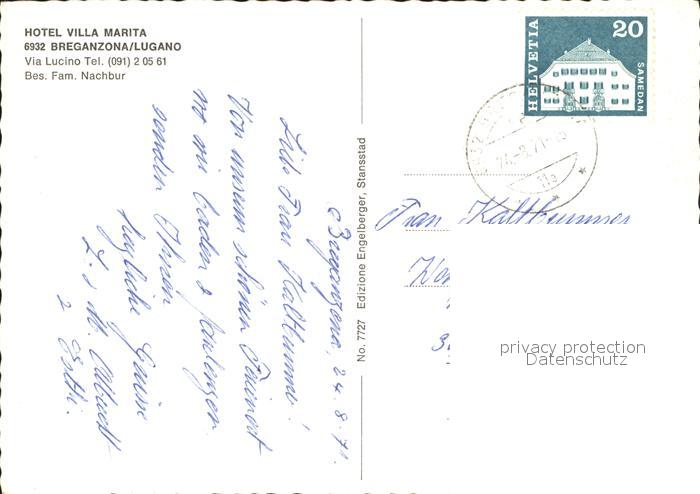 HOTEL VILLA MARITA
6932 BREGANZONA/LUGANO
Via Lucino Tel. (091) 2 05 61
Bes. Fam. Nachbur
HELVETIA
20
SAMEDAN
24.-8.71-
11a
Breganzona, 24.8.71.
Liebe Frau Kaltbrunner!
Von unserem schönen Ferienort
wo wir baden & faulenzen
senden Ihnen
herzliche Grüsse
No. 7727 Edizione Engelberger, Stansstad
Frau Kaltbrunner
privacy protection
Datenschutz